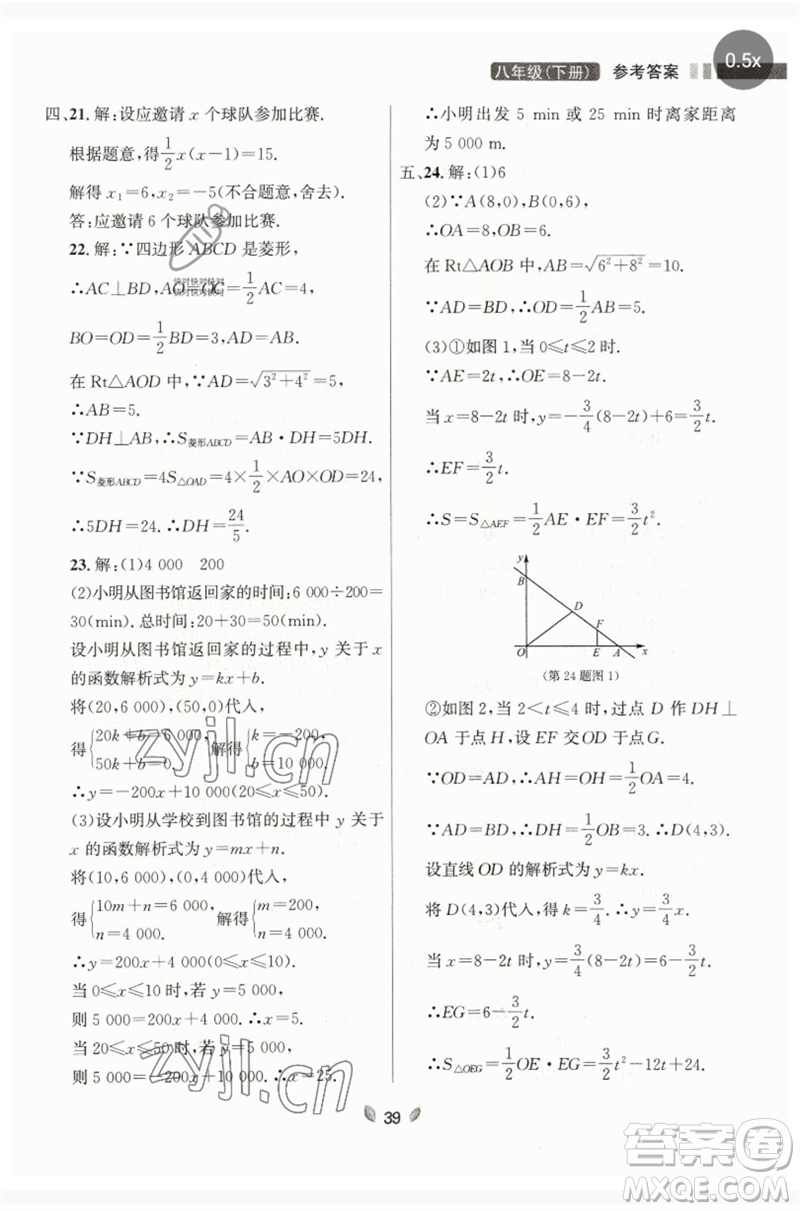 0.5x
八年级(下册) 参考答案
四、21. 解:设应邀请 x 个球队参加比赛.
根据题意,得 1/2 x(x−1)=15.
解得 x₁=6,x₂=−5(不合题意,舍去).
答:应邀请 6 个球队参加比赛.
22. 解:∵四边形 ABCD 是菱形,
∴AC⊥BD,AO=OC=1/2 AC=4,
快对快对快对
快对快对快对
BO=OD=1/2 BD=3,AD=AB.
在 Rt△AOD 中,∵AD=√(3²+4²),
∴AB=5.
∵DH⊥AB,∴S菱形ABCD=AB·DH=5DH.
∵S菱形ABCD=4S△OAD=4×1/2×AO×OD=24,
∴5DH=24. ∴DH=24/5.
23. 解:(1)4 000 200
(2)小明从图书馆返回家的时间:6 000÷200=
30(min). 总时间:20+30=50(min).
设小明从图书馆返回家的过程中,y 关于 x
的函数解析式为 y=kx+b.
将(20,6 000),(50,0)代入,
得{20k+b=6 000, 50k+b=0. 解得{k=−200, b=10 000.
∴y=−200x+10 000(20≤x≤50).
(3)设小明从学校到图书馆的过程中 y 关于
x 的函数解析式为 y=mx+n.
将(10,6 000),(0,4 000)代入,
得{10m+n=6 000, n=4 000. 解得{m=200, n=4 000.
∴y=200x+4 000(0≤x≤10).
当 0≤x≤10 时,若 y=5 000,
则 5 000=200x+4 000. ∴x=5.
当 20≤x≤50 时,若 y=5 000,
则 5 000=−200x+10 000. ∴x=25.
∴小明出发 5 min 或 25 min 时离家距离
为 5 000 m.
五、24. 解:(1)6
(2)∵A(8,0),B(0,6),
∴OA=8,OB=6.
在 Rt△AOB 中,AB=√(6²+8²)=10.
∵AD=BD,∴OD=1/2 AB=5.
(3)①如图 1,当 0≤t≤2 时.
∵AE=2t,∴OE=8−2t.
当 x=8−2t 时,y=−3/4(8−2t)+6=3/2 t.
∴EF=3/2 t.
∴S=S△AEF=1/2 AE·EF=3/2 t².
y
B
D
F
O
E
A
x
(第 24 题图 1)
②如图 2,当 2<t≤4 时,过点 D 作 DH⊥
OA 于点 H,设 EF 交 OD 于点 G.
∵OD=AD,∴AH=OH=1/2 OA=4.
∵AD=BD,∴DH=1/2 OB=3. ∴D(4,3).
设直线 OD 的解析式为 y=kx.
将 D(4,3)代入,得 k=3/4. ∴y=3/4 x.
当 x=8−2t 时,y=3/4(8−2t)=6−3/2 t.
∴EG=6−3/2 t.
∴S△OEG=1/2 OE·EG=3/2 t²−12t+24.
39
zyjl.cn
zyjl.cn
答案卷
MXQE.COM